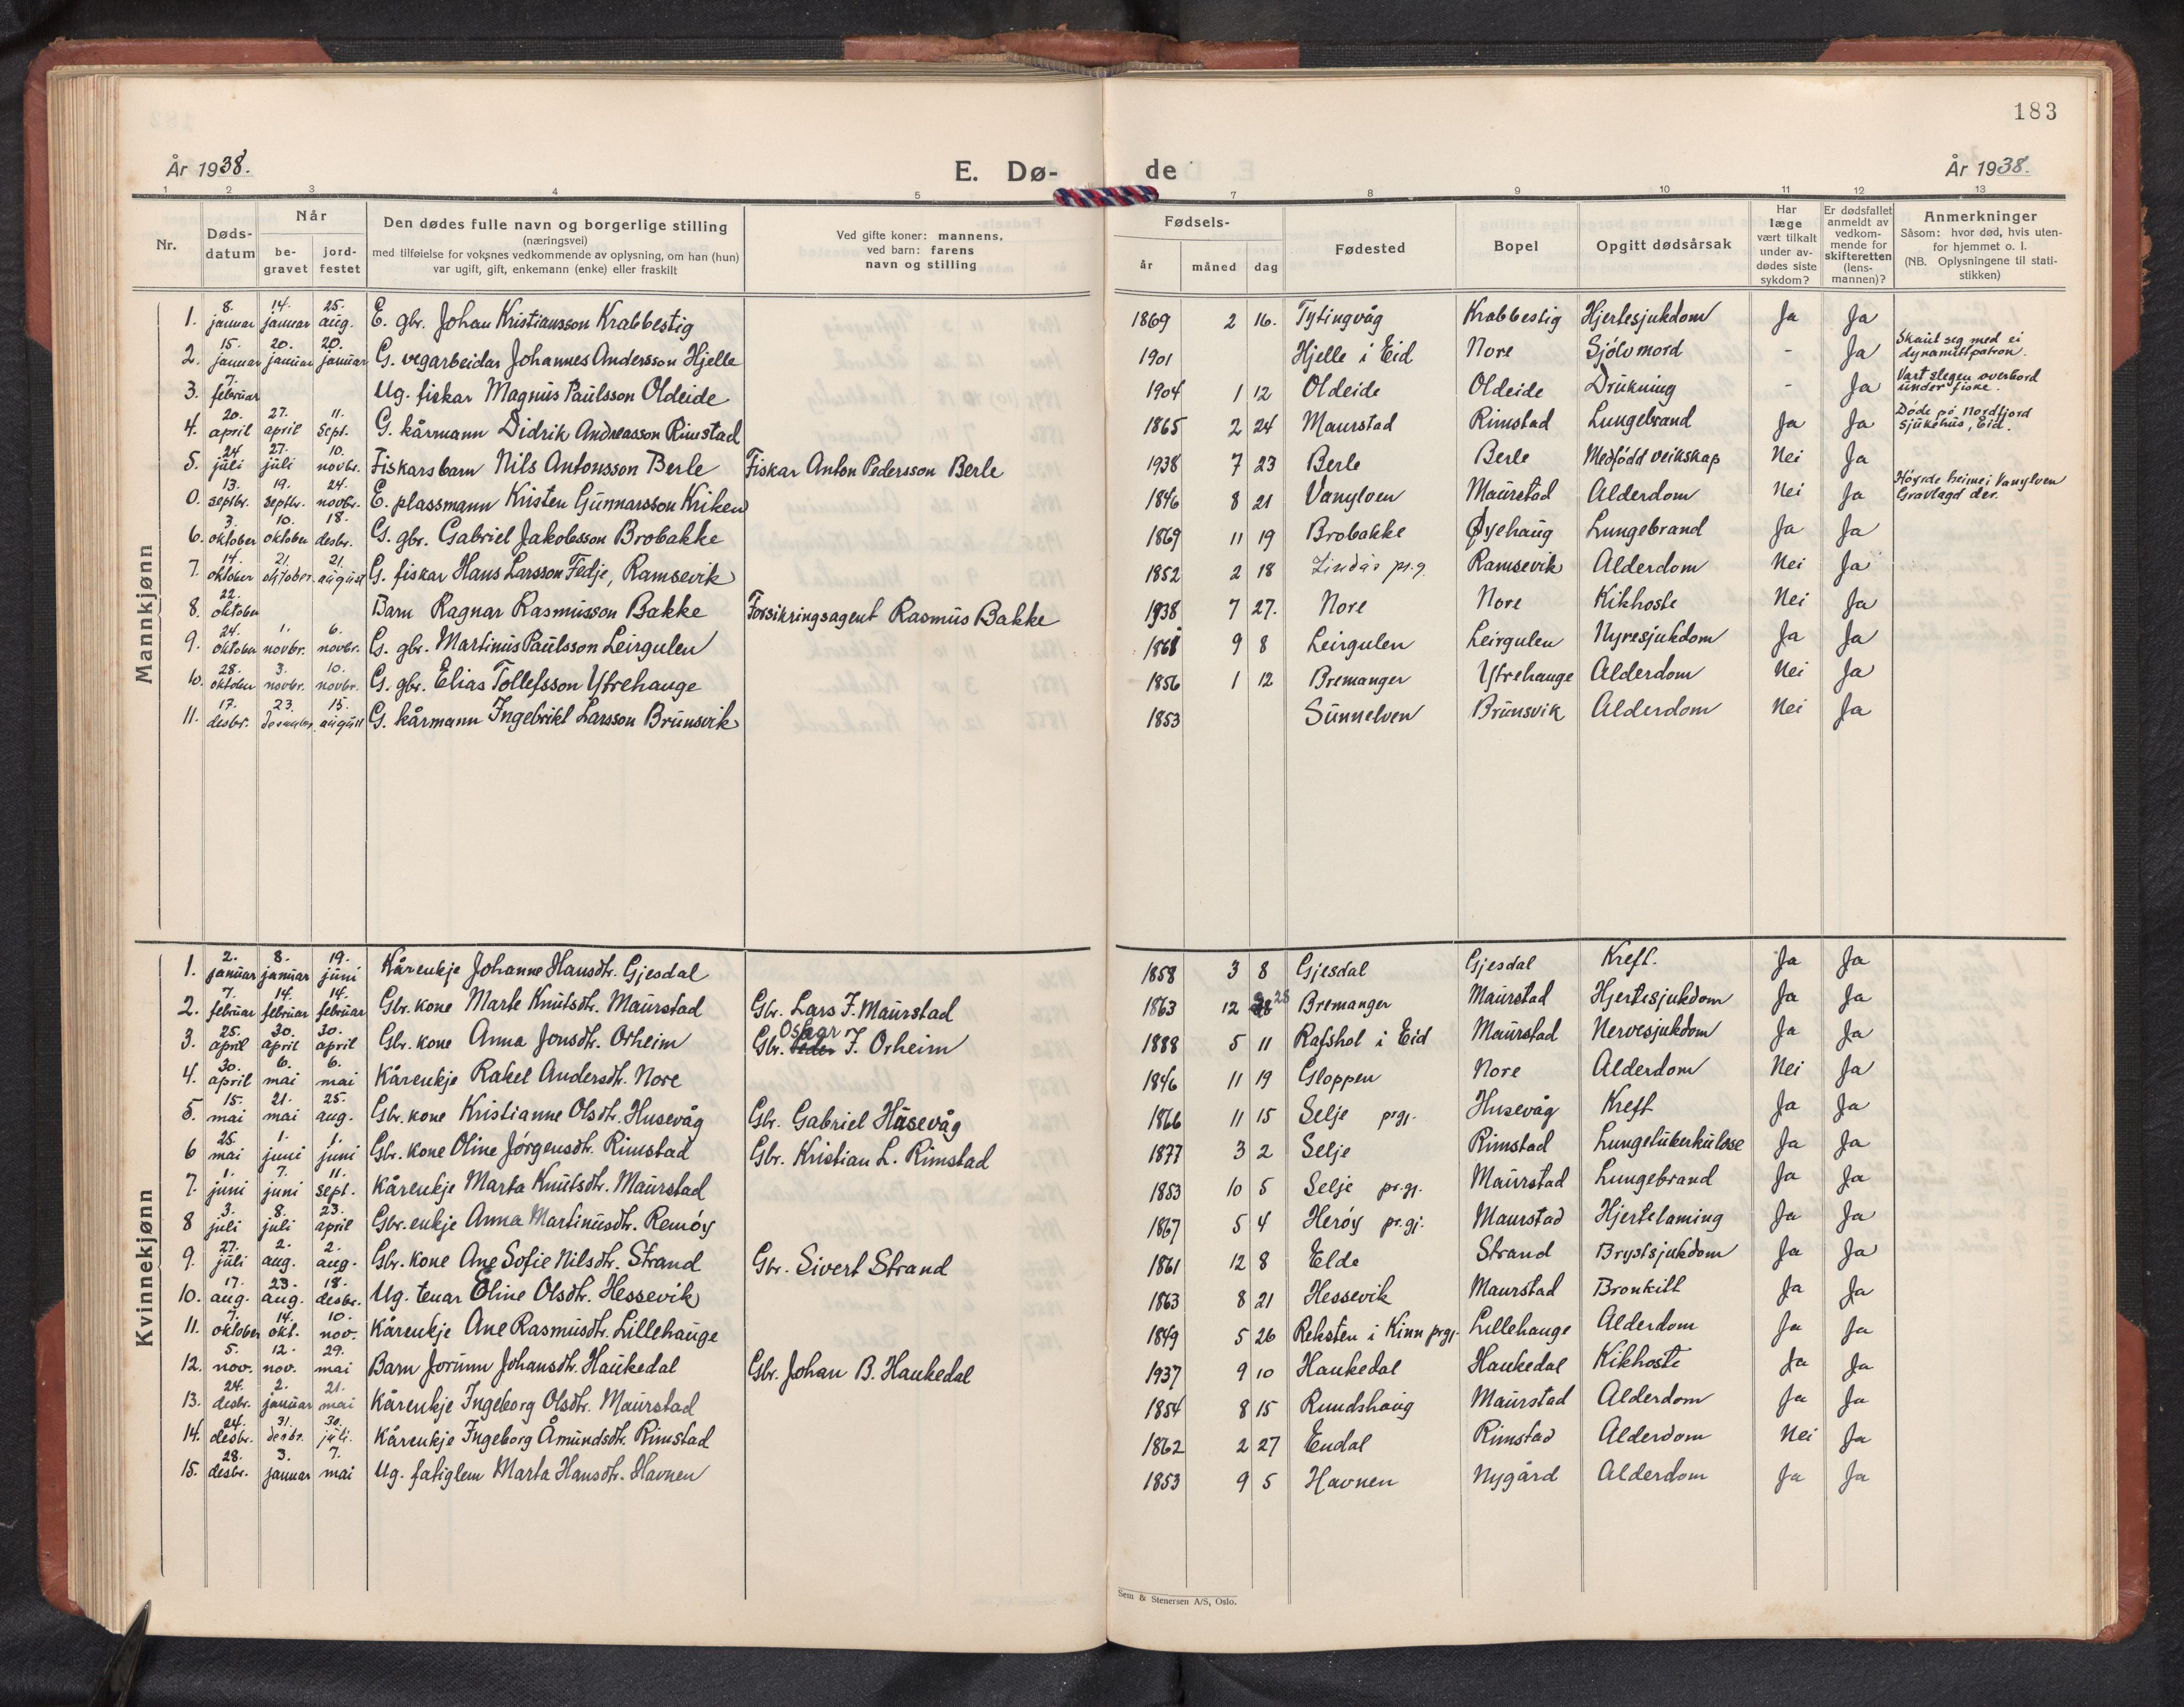 183
År 1938.
E. Dø-
de
År 1938.
1 2 3 4 5 7 8 9 10 11 12 13
Nr.
Døds-
datum
Når
be-
gravet
jord-
festet
Den dødes fulle navn og borgerlige stilling
(næringsvei)
med tilføielse for voksnes vedkommende av oplysning, om han (hun)
var ugift, gift, enkemann (enke) eller fraskilt
Ved gifte koner: mannens,
ved barn: farens
navn og stilling
Fødsels-
år
måned
dag
Fødested
Bopel
Opgitt dødsårsak
Har
læge
vært tilkalt
under av-
dødes siste
sykdom?
Er dødsfallet
anmeldt av
vedkom-
mende for
skifteretten
(lens-
mannen)?
Anmerkninger
Såsom: hvor død, hvis uten-
for hjemmet o. l.
(NB. Oplysningene til stati-
stikken)
Mannkjønn
1. 8. januar 14. januar 25. aug. E. gbr. Johan Kristiansson Krabbestig 1869 2 16. Tytingvåg Krabbestig Hjertesjukdom Ja Ja
2. 15. januar 20. januar 20. januar G. vegarbeidar Johannes Andersson Hjelle 1901 Hjelle i Eid Nore Sjölvmord - Ja Skaut seg med ei dynamittpatron.
3. 7. februar Ug. fiskar Magnus Paulsson Oldeide 1904 1 12 Oldeide Oldeide Drukning - Ja Vart slegen overbord under fiske.
4. 20. april 27. april 11. sept. G. kårmann Didrik Andreasson Rimstad 1865 2 24 Maurstad Rimstad Lungebrand Ja Ja Døde på Nordfjord sjukehus, Eid.
5. 24 juli 27. juli 10. novbr. Fiskarsbarn Nils Antonsson Berle Fiskar Anton Pedersson Berle 1938 7 23 Berle Berle Medfödd veikskap Nei Ja
0. 13. septbr. 19. septbr. 24. novbr. E. plassmann Kristen Gunnarsson Kriken 1846 8 21 Vanylven Maurstad Alderdom Nei Ja Höyrde heime i Vanylven Gravlagd der.
6. 3. oktober 10. oktober 18. desbr. G. gbr. Gabriel Jakobsson Brobakke 1869 11 19 Brobakke Öyehaug Lungebrand Ja Ja
7. 14. oktober 21. oktober 21. august G. fiskar Hans Larsson Fedje, Ramsevik 1852 2 18 Lindås pr.g. Ramsevik Alderdom Nei Ja
8. 22. oktober Barn Ragnar Rasmusson Bakke Forsikringsagent Rasmus Bakke 1938 7 27. Nore Nore Kikhoste Nei Ja
9. 24. oktober 1. novbr. 6. novbr. G. gbr. Martinus Paulsson Leirgulen 1868 9 8 Leirgulen Leirgulen Nyresjukdom Ja Ja
10. 28. oktober 3. novbr. 10. novbr. G. gbr. Elias Tollefsson Ytrehauge 1856 1 12 Bremanger Ytrehauge Alderdom Nei Ja
11. 17. desbr. 23. desember 15. august G. kårmann Ingebrikt Larsson Brunsvik 1853 Sunnelven Brunsvik Alderdom Nei Ja
Kvinnekjønn
1. 2. januar 8. januar 19. juni Kårenkje Johanne Hansdtr. Gjesdal 1858 3 8 Gjesdal Gjesdal Kreft. Ja Ja
2. 7. februar 14. februar 14. februar Gbr. kone Marte Knutsdtr. Maurstad Gbr. Lars J. Maurstad 1863 12 28 Bremanger Maurstad Hjertesjukdom Ja Ja
3. 25. april 30. april 30. april Gbr. kone Anna Jonsdtr. Orheim Gbr. Oskar J. Orheim 1888 5 11 Rafshol i Eid Maurstad Nervesjukdom Ja Ja
4. 30. april 6. mai 6. mai Kårenkje Rakel Andersdtr. Nore 1846 11 19 Gloppen Nore Alderdom Nei Ja
5. 15. mai 21. mai 25. aug. Gbr. kone Kristianne Olsdtr. Husevåg Gbr. Gabriel Håsevåg 1866 11 15 Selje prgj. Husevåg Kreft Ja Ja
6 25. mai 1. juni 1. juni Gbr. kone Oline Jörgensdtr. Rimstad Gbr. Kristian L. Rimstad 1877 3 2 Selje Rimstad Lungetuberkulose Ja Ja
7. 1. juni 7. juni 11. sept. Kårenkje Marta Knutsdtr. Maurstad 1853 10 5 Selje pr.gj. Maurstad Lungebrand Ja Ja
8 3. juli 8. juli 23. april Gbr. enkje Anna Martinusdtr. Remöy 1867 5 4 Heröy pr.gj. Maurstad Hjertelaming Ja Ja
9. 27. juli 2. aug. 2. aug. Gbr. kone Ane Sofie Nilsdtr. Strand Gbr. Sivert Strand 1861 12 8 Elde Strand Brystsjukdom Ja Ja
10. 17. aug. 23. aug. 18. desbr. Ug. tenar Eline Olsdtr. Hessevik 1863 8 21 Hessevik Maurstad Bronkitt Ja Ja
11. 7. oktober 14. okt. 10. nov. Kårenkje Ane Rasmusdtr. Lillehauge 1849 5 26 Reksten i Kinn prgj. Lillehauge Alderdom Ja Ja
12. 5. nov. 12. nov. 29. mai Barn Jorunn Johansdtr. Haukedal Gbr. Johan B. Haukedal 1937 9 10 Haukedal Haukedal Kikhoste Ja Ja
13. 24. desbr. 2. januar 21. mai Kårenkje Ingeborg Olsdtr. Maurstad 1854 8 15 Rundshaug Maurstad Alderdom Ja Ja
14. 24. desbr. 31. desbr. 30. juli. Kårenkje Ingeborg Åmundsdtr. Rimstad 1862 2 27 Endal Rimstad Alderdom Nei Ja
15. 28. desbr. 3. januar 7. mai Ug. fatiglem Marta Hansdtr. Havnen 1853 9 5 Havnen Nygård Alderdom Ja Ja
Sem & Stenersen A/S, Oslo.